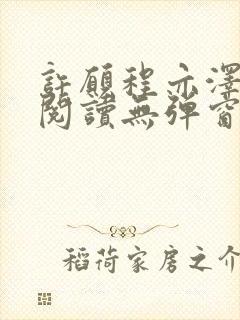 許願程亦澤
閱讀無彈窗
稻荷家房之介